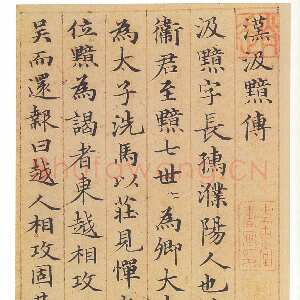 漢汲黯傳
汲黯字長孺濮陽人也
衛君至黯七世〻為卿大
為太子洗馬以莊見憚
位黯為謁者東越相攻
吳而還報曰越人相攻固